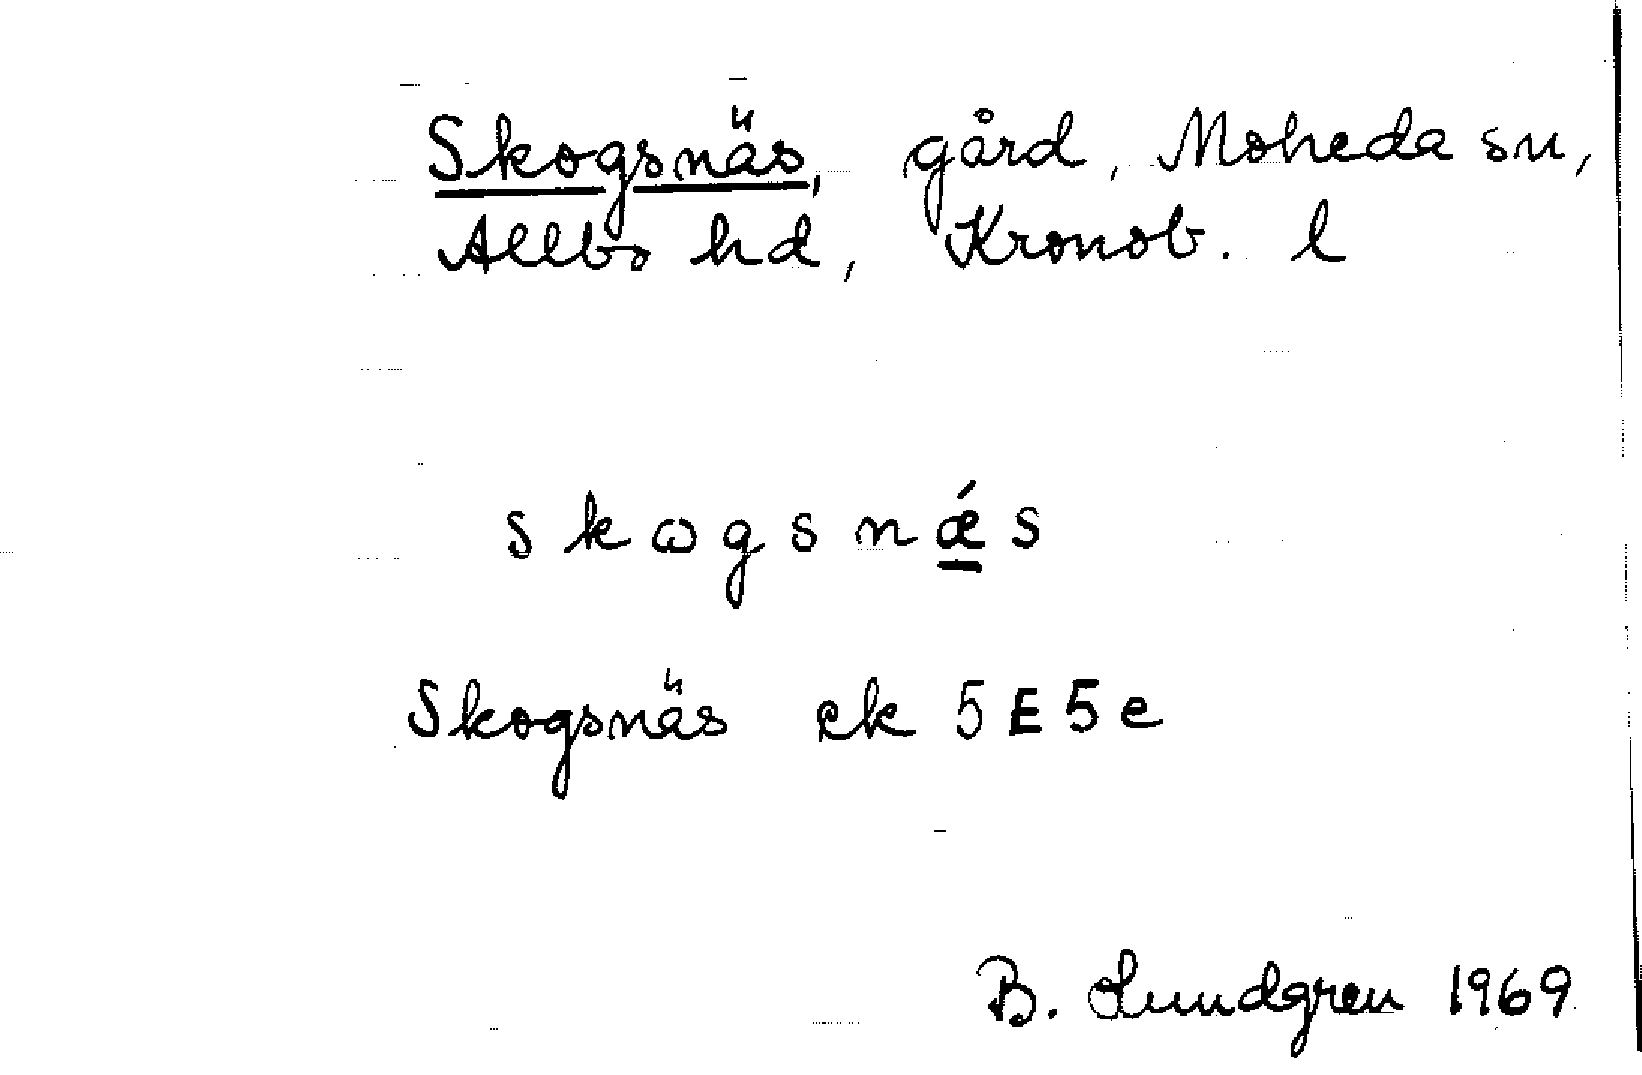 Skogsnäs, gård, Moheda sn,
Allbo hd, Kronob. l
skωgsnǽs
Skogsnäs ek 5E5e
B. Lundgren 1969